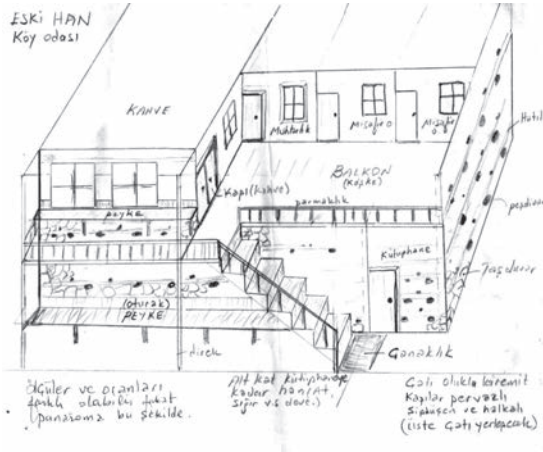 ESKİ HAN
Köy odası
KAHVE
Muhtarlık
Misafir O
Misafir
O.
Hatıl
BALKON
(Köşke)
Kapı (kahve)
PEYKE
parmaklık
peşdivan
Kütüphane
Taş duvar
(oturak)
PEYKE
direk
Ganaklık
Ölçüler ve oranları
farklı olabilir fakat
panaroma bu şekilde.
Alt kat kütüphaneye
kadar han(At,
sığır v.s deve.)
Çatı oluklu kiremit
Kapılar pervazlı
ve halkalı
(üste Çatı yerleşecek)